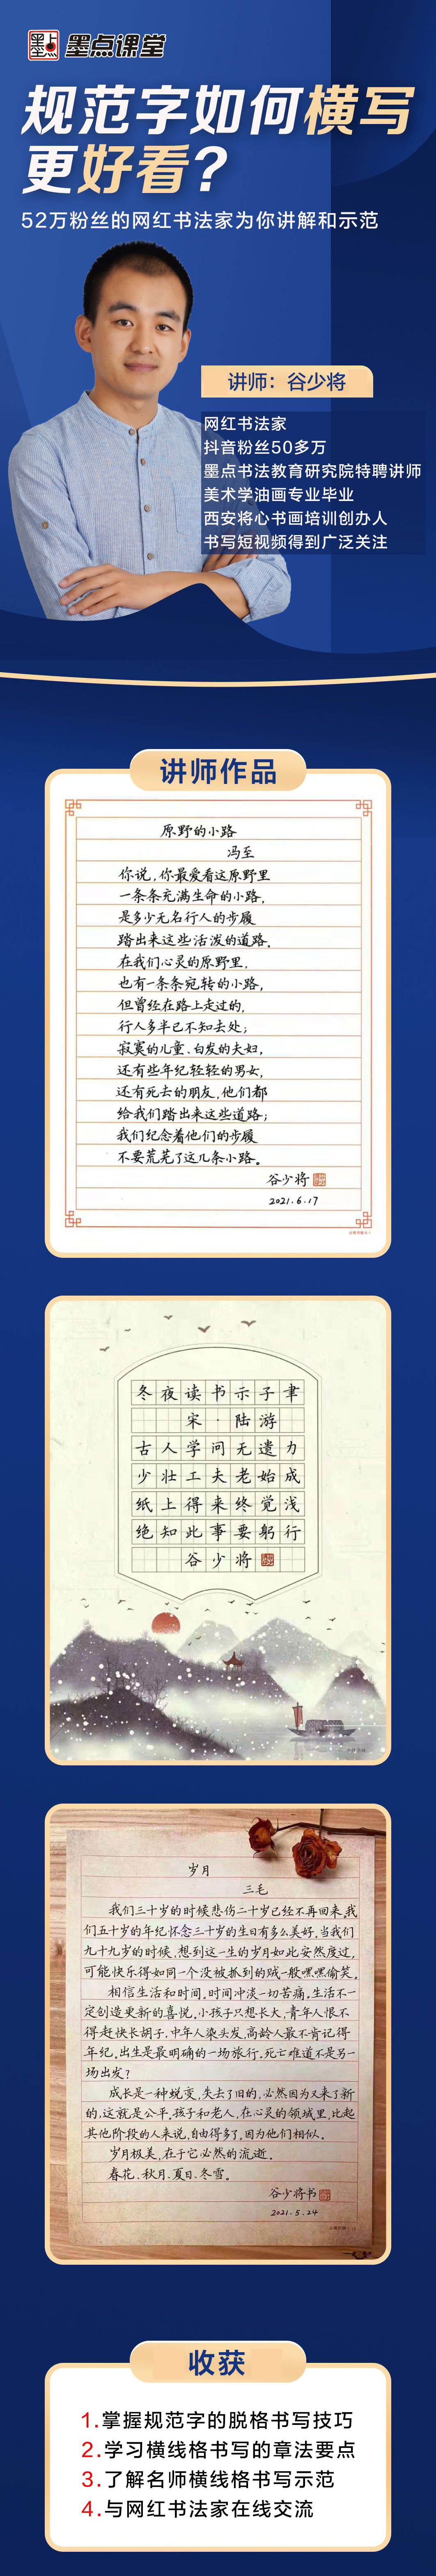 墨点
墨点课堂
规范字如何横写
更好看?
52万粉丝的网红书法家为你讲解和示范
讲师：谷少将
网红书法家
抖音粉丝50多万
墨点书法教育研究院特聘讲师
美术学油画专业毕业
西安将心书画培训创办人
书写短视频得到广泛关注
讲师作品
原野的小路
冯至
你说,你最爱看这原野里
一条条充满生命的小路,
是多少无名行人的步履
踏出来这些活泼的道路。
在我们心灵的原野里,
也有一条条宛转的小路,
但曾经在路上走过的,
行人多半已不知去处;
寂寞的儿童、白发的夫妇,
还有些年纪轻轻的男女,
还有死去的朋友,他们都
给我们踏出来这些道路;
我们纪念着他们的步履
不要荒芜了这几条小路。
谷少将
2021.6.17
冬夜读书示子聿
宋·陆游
古人学问无遗力
少壮工夫老始成
纸上得来终觉浅
绝知此事要躬行
谷少将
岁月
三毛
我们三十岁的时候悲伤二十岁已经不再回来,我
们五十岁的年纪怀念三十岁的生日有多么美好,当我们
九十九岁的时候,想到这一生的岁月如此安然度过,
可能快乐得如同一个没被抓到的贼一般嘿嘿偷笑。
相信生活和时间,时间冲淡一切苦痛,生活不一
定创造更新的喜悦,小孩子只想长大,青年人恨不
得赶快长胡子,中年人染头发,高龄人最不肯记得
年纪,出生是最明确的一场旅行,死亡难道不是另一
场出发?
成长是一种蜕变,失去了旧的,必然因为又来了新
的,这就是公平,孩子和老人,在心灵的领域里,比起
其他阶段的人来说,自由得多了,因为他们相似。
岁月极美,在于它必然的流逝。
春花、秋月、夏日、冬雪。
谷少将书
2021.5.24
收获
1.掌握规范字的脱格书写技巧
2.学习横线格书写的章法要点
3.了解名师横线格书写示范
4.与网红书法家在线交流